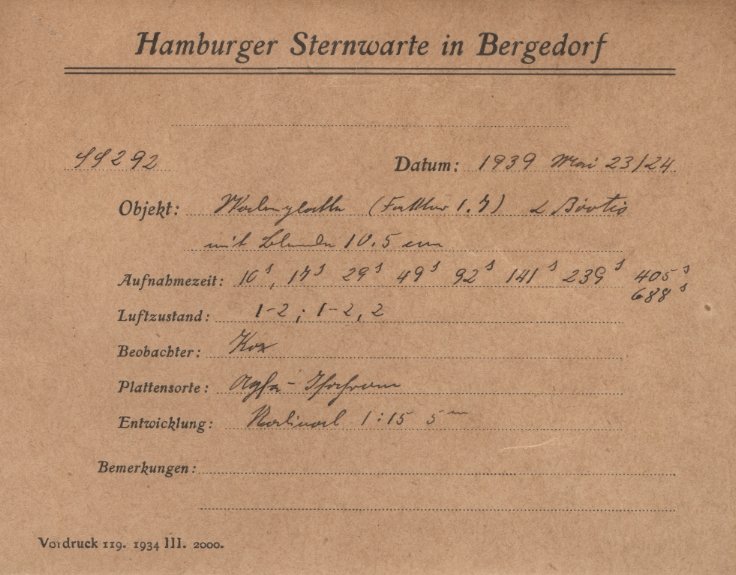 Hamburger Sternwarte in Bergedorf
SS292 Datum: 1939 Mai 23/24
Objekt: (Faktor 1.7) α Bootis
mit Blende 10.5 cm
Aufnahmezeit: 10s, 17s 29s 49s 92s 141s 239s 405s
688s
Luftzustand: 1-2; 1-2, 2
Beobachter: Kox
Plattensorte: Agfa - Isochrom
Entwicklung: Rodinal 1:15 5m
Bemerkungen:
Vordruck 119. 1934 III. 2000.